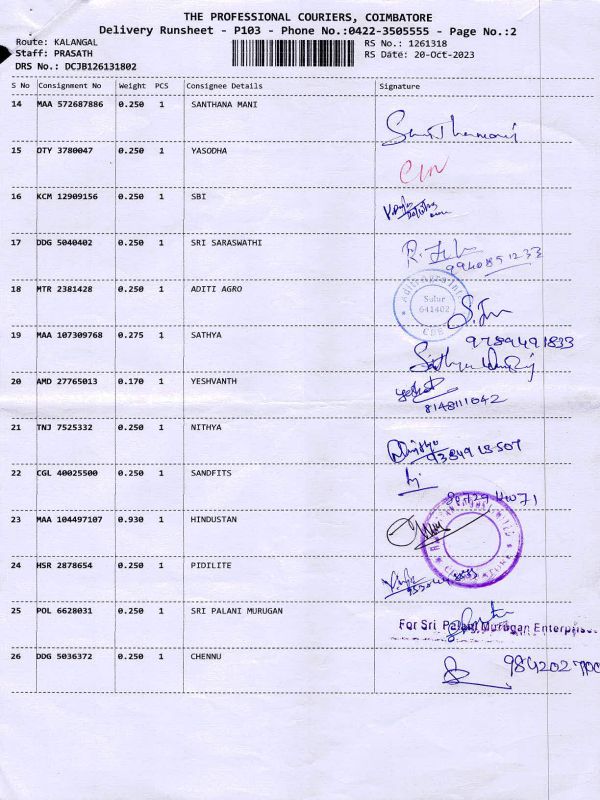 THE PROFESSIONAL COURIERS, COIMBATORE
Delivery Runsheet - P103 - Phone No.:0422-3505555 - Page No.:2
Route: KALANGAL
RS No.: 1261318
Staff: PRASATH
RS Date: 20-Oct-2023
DRS No.: DCJB126131802
S No Consignment No Weight PCS Consignee Details Signature
14 MAA 572687886 0.250 1 SANTHANA MANI
15 DTY 3780047 0.250 1 YASODHA
16 KCM 12909156 0.250 1 SBI
17 DDG 5040402 0.250 1 SRI SARASWATHI
9940851233
18 MTR 2381428 0.250 1 ADITI AGRO
Sulur
641402
CBE
19 MAA 107309768 0.275 1 SATHYA
9789491833
20 AMD 27765013 0.170 1 YESHVANTH
8148111042
21 TNJ 7525332 0.250 1 NITHYA
22 CGL 40025500 0.250 1 SANDFITS
23 MAA 104497107 0.930 1 HINDUSTAN
24 HSR 2878654 0.250 1 PIDILITE
25 POL 6628031 0.250 1 SRI PALANI MURUGAN
For Sri Palani Murugan Enterprise
26 DDG 5036372 0.250 1 CHENNU
984202700